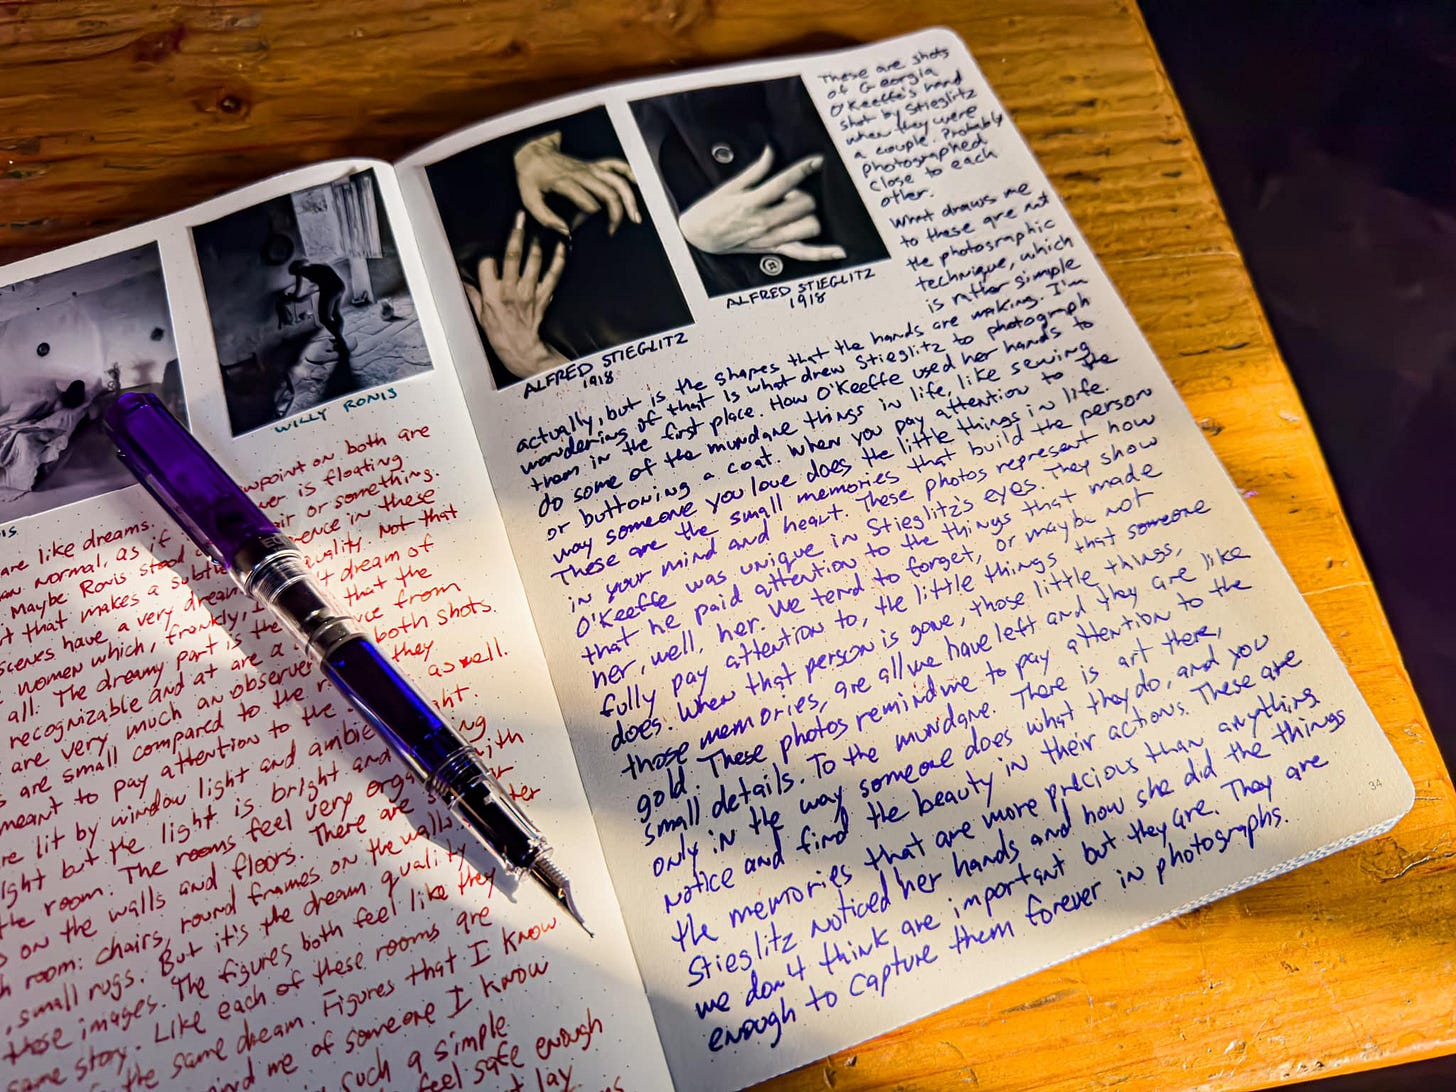 WILLY RONIS
on both are
is floating
are like dreams. or something.
normal, as if in these
Maybe Ronis stood quality. Not that
that makes a dream of
scenes have a very that the
women which, frankly, I from
all. The dreamy part is the both shots.
recognizable and at are a they
are very much an as well.
are small compared to the
meant to pay attention to the
lit by window light and
light but the light is bright and
the room. The rooms feel very with
on the walls and floors. There are
room: chairs, round frames on the walls,
small rugs. But it's the dream quality
these images. The figures both feel like they
same story. Like each of these rooms are
the same dream. Figures that I know
me of someone I know
such a simple
feel safe enough
lay
ALFRED STIEGLITZ
1918
ALFRED STIEGLITZ
1918
These are shots
of Georgia
O'Keeffe's hand
shot by Stieglitz
when they were
a couple. Probably
photographed
close to each
other.
What draws me
to these are not
the photographic
technique, which
is rather simple
actually, but is the shapes that the hands are making. I'm
wondering if that is what drew Stieglitz to photograph
them in the first place. How O'Keeffe used her hands to
do some of the mundane things in life, like sewing
or buttoning a coat. When you pay attention to the
way someone you love does the little things in life.
These are the small memories that build the person
in your mind and heart. These photos represent how
O'Keeffe was unique in Stieglitz's eyes. They show
that he paid attention to the things that made
her, well, her. We tend to forget, or maybe not
fully pay attention to, the little things that someone
does. When that person is gone, those little things,
those memories, are all we have left and they are like
gold. These photos remind me to pay attention to the
small details. To the mundane. There is art there,
only in the way someone does what they do, and you
notice and find the beauty in their actions. These are
the memories that are more precious than anything
Stieglitz noticed her hands and how she did the things
we don't think are important but they are. They are
enough to capture them forever in photographs.
34